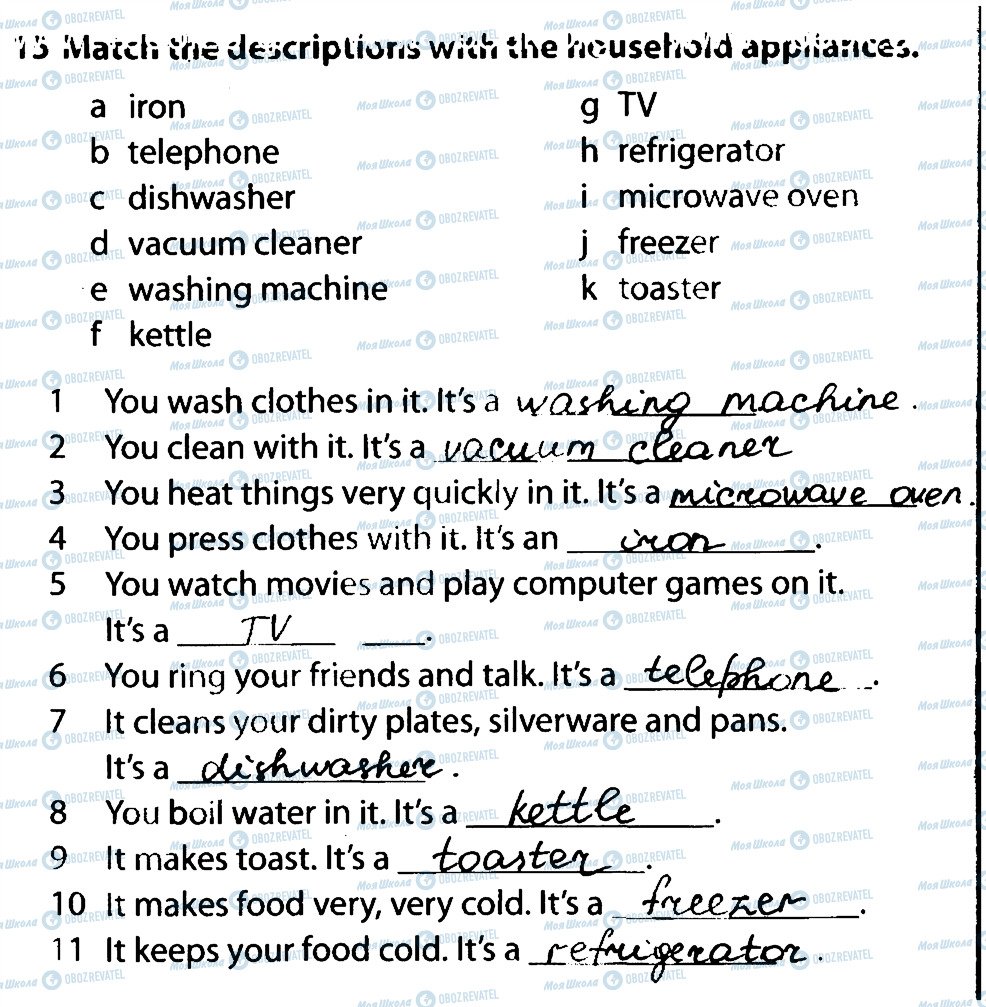 15 Match the descriptions with the household appliances.
a iron
b telephone
c dishwasher
d vacuum cleaner
e washing machine
f kettle
g TV
h refrigerator
i microwave oven
j freezer
k toaster
1 You wash clothes in it. It's a washing machine.
2 You clean with it. It's a vacuum cleaner
3 You heat things very quickly in it. It's a microwave oven.
4 You press clothes with it. It's an iron.
5 You watch movies and play computer games on it.
It's a TV.
6 You ring your friends and talk. It's a telephone.
7 It cleans your dirty plates, silverware and pans.
It's a dishwasher.
8 You boil water in it. It's a kettle.
9 It makes toast. It's a toaster.
10 It makes food very, very cold. It's a freezer.
11 It keeps your food cold. It's a refrigerator.
МояШкола OBOZREVATEL